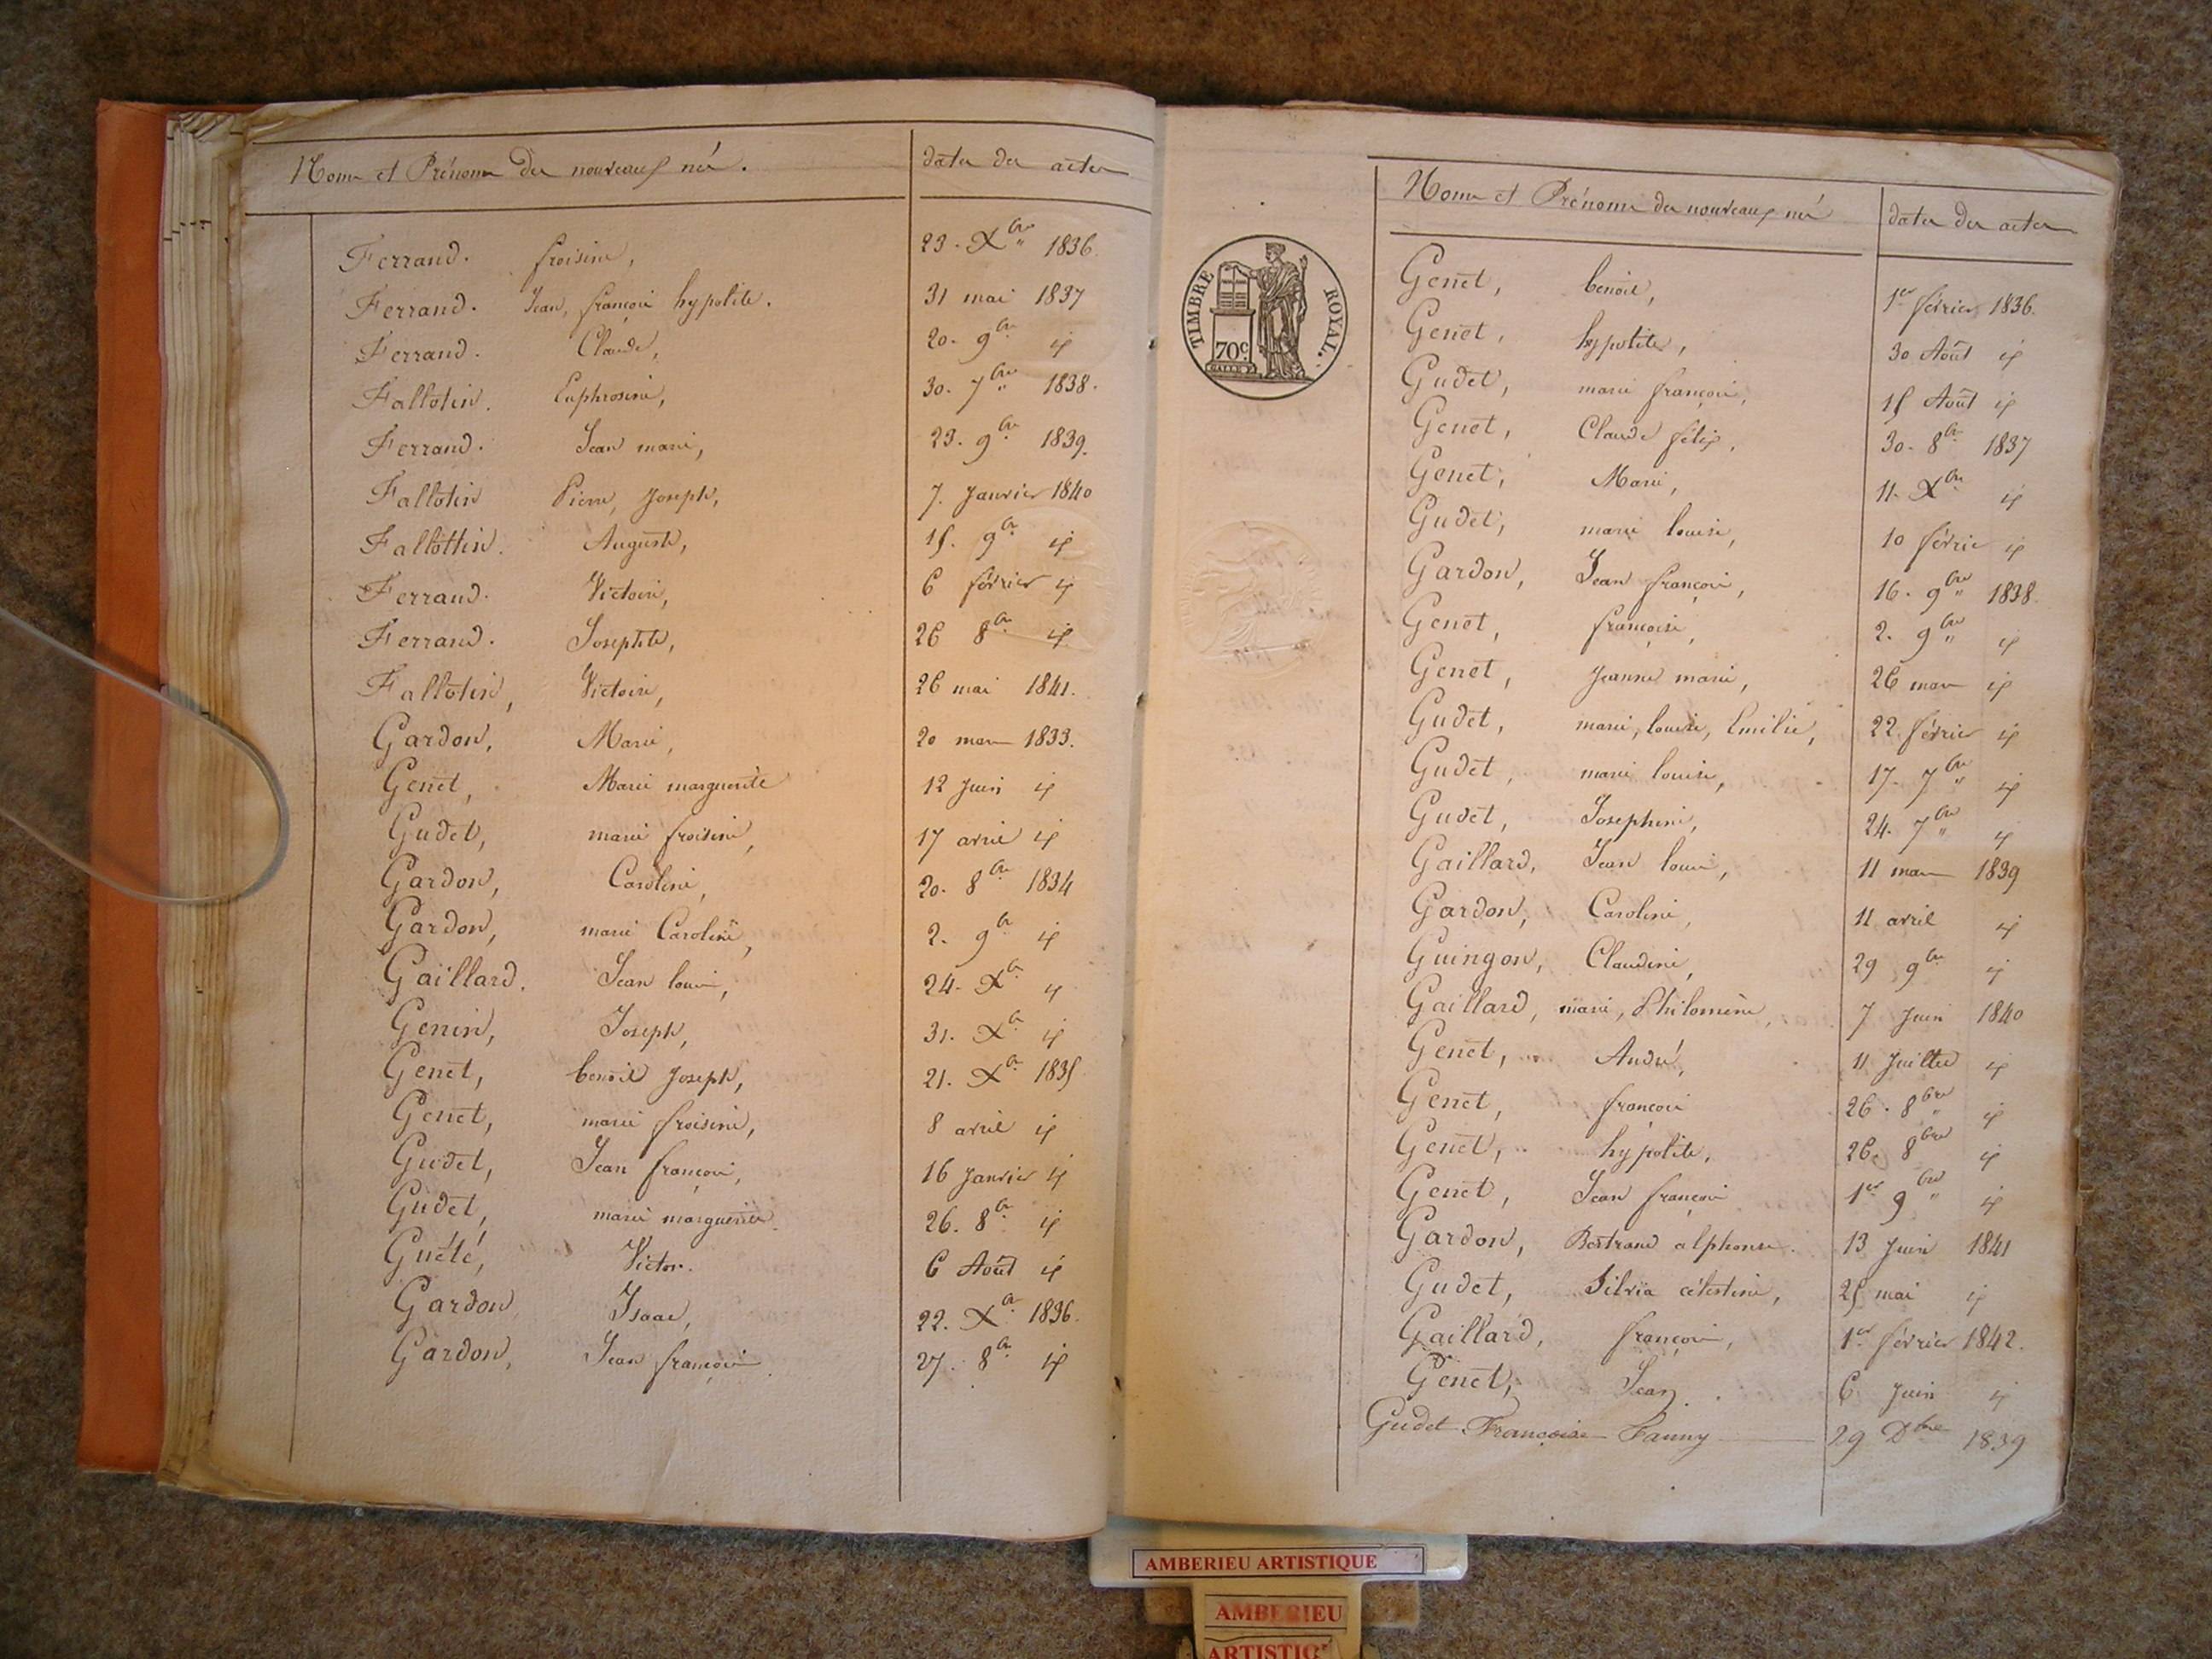 Noms et Prénoms des nouveaux nés.
dates des actes
Ferrand. froisine, 23. Xbre 1836.
Ferrand. Jean, françois hypolite. 31 mai 1837
Ferrand. Claude, 20. 9bre id
Fallotin. Euphrosine, 30. 7bre 1838.
Ferrand. Jean marie, 23. 9bre 1839.
Fallotin Pierre, Joseph, 7. Janvier 1840
Fallottin. Auguste, 15. 9br id
Ferrand. Victoire, 6 février id
Ferrand. Josephte, 26 8bre id
Fallotin, Victoire, 26 mai 1841.
Gardon, Marie, 20 mars 1833.
Genet, Marie marguerite 12 Juin id
Gudet, marie froisine, 17 avril id
Gardon, Caroline, 20. 8bre 1834
Gardon, marie Caroline, 2. 9br id
Gaillard. Jean louis, 24. Xbr id
Genin, Joseph, 31. Xbr id
Genet, benoit Joseph, 21. Xbr 1835
Genet, marie froisine, 8 avril id
Gudet, Jean françois, 16 Janvier id
Gudet, marie marguerite. 26. 8br id
Guété, Victor. 6 Août id
Gardon, Isaac, 22. Xbr 1836.
Gardon, Jean françois. 27. 8bre id
Noms et Prénoms des nouveaux nés
dates des actes
TIMBRE ROYAL.
70c
Genet, benoit, 1er février 1836.
Genet, hypolite, 30 Août id
Gudet, marie françois, 15 Août id
Genet, Claude félix, 30. 8bre 1837
Genet, Marie, 11. Xbre id
Gudet, marie louise, 10 février id
Gardon, Jean françois, 16. 9bre 1838.
Genet, françoise, 2. 9bre id
Genet, Jeanne marie, 26 mars id
Gudet, marie, louise, Emilie, 22 février id
Gudet, marie louise, 17. 7bre id
Gudet, Josephine, 24. 7bre id
Gaillard, Jean louis, 11 mars 1839
Gardon, Caroline, 11 avril id
Guingon, Claudine, 29 9bre id
Gaillard, marie, Philomène, 7 Juin 1840
Genet, André, 11 Juillet id
Genet, françois 26. 8bre id
Genet, hypolite, 26. 8bre id
Genet, Jean françois 1er 9bre id
Gardon, Bertrand alphonse. 13 Juin 1841
Gudet, Silvia célestine, 25 mai id
Gaillard, françois, 1er février 1842.
Genet, Jean. 6 Juin id
Gudet Françoise Fanny 29 Dbre 1839
AMBERIEU ARTISTIQUE
AMBERIEU
ARTISTIQ